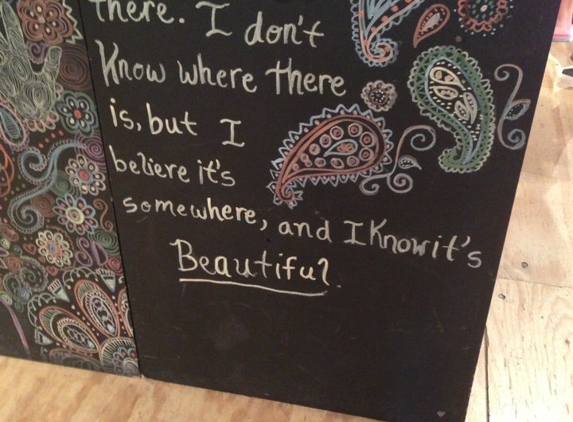 there. I don't
Know where there
is, but I
believe it's
somewhere, and I Know it's
Beautiful.